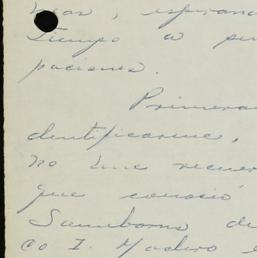 esperan
tiempo a
paciones.
Primera
dentificarme,
no me recuer
que conoció
Sanborns de
co I. Madero e